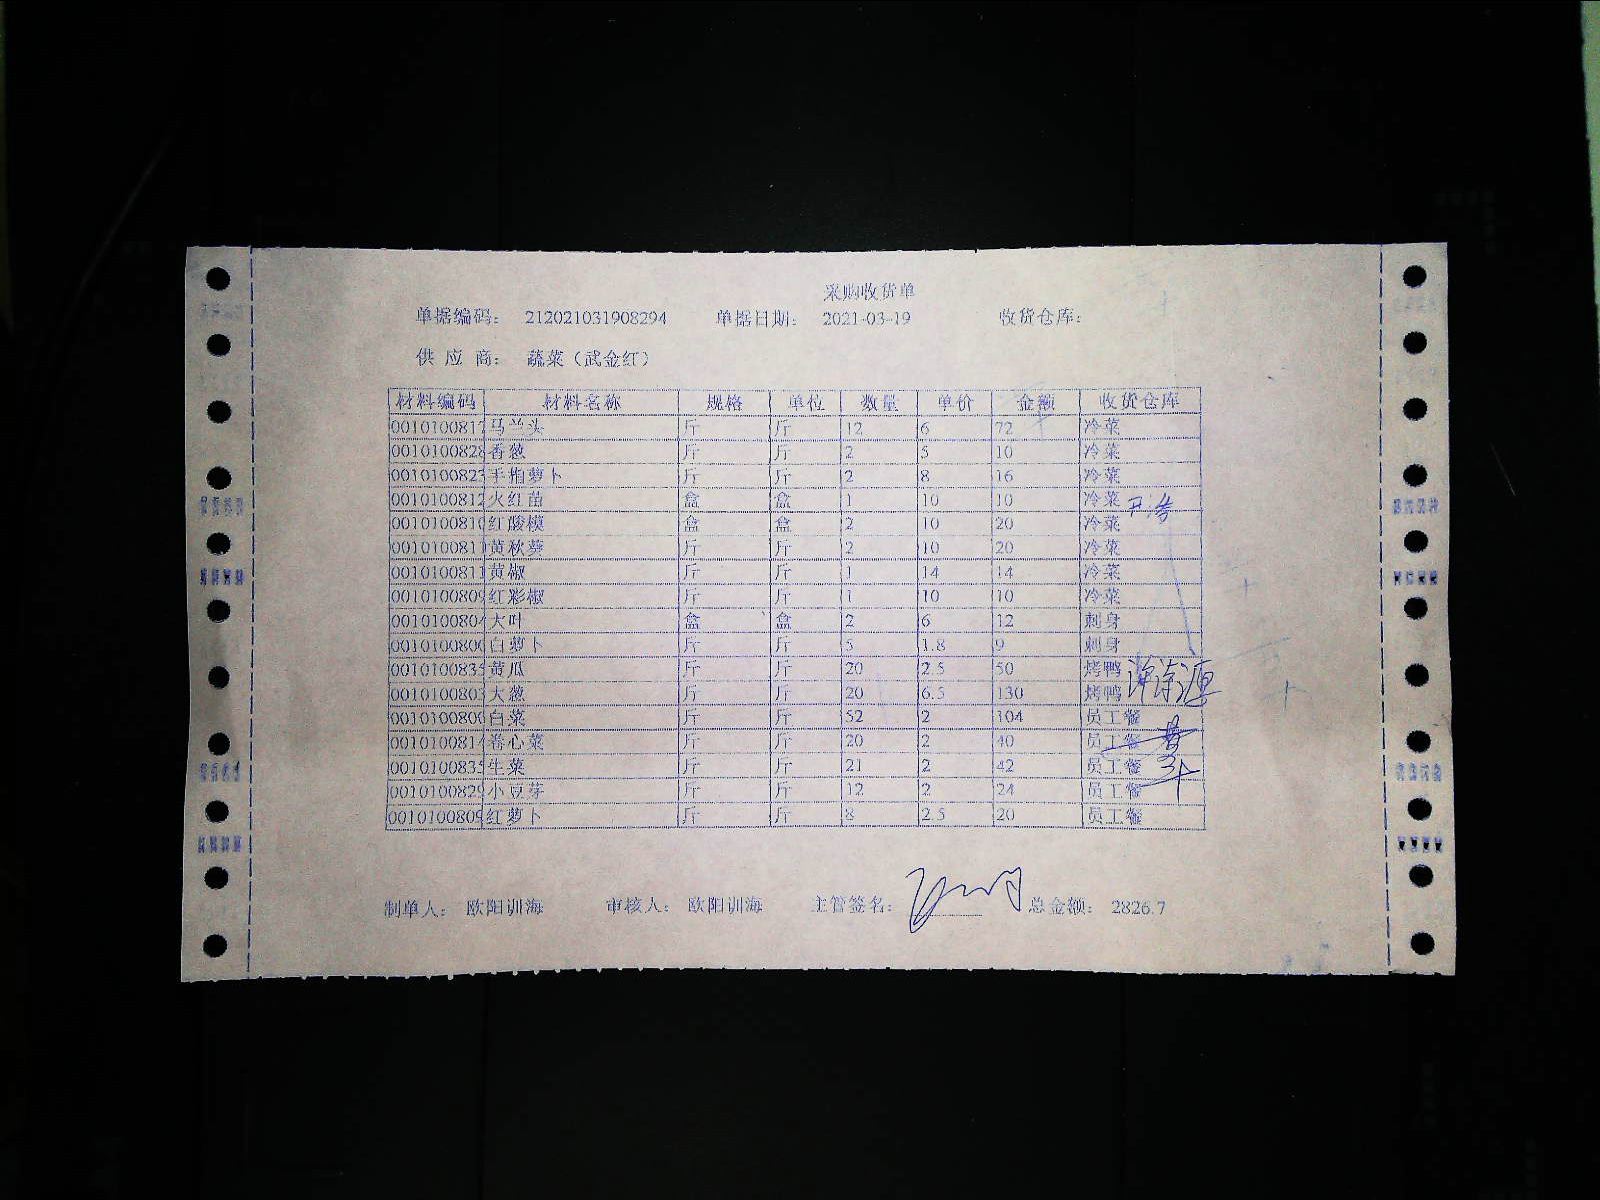 采购收货单
单据编码： 212021031908294 单据日期： 2021-03-19 收货仓库：
供 应 商： 蔬菜（武金红）
材料编码 材料名称 规格 单位 数量 单价 金额 收货仓库
0010100817 马兰头 斤 斤 12 6 72 冷菜
0010100828 香葱 斤 斤 2 5 10 冷菜
0010100823 手指萝卜 斤 斤 2 8 16 冷菜
0010100812 火红苗 盒 盒 1 10 10 冷菜
0010100810 红酸模 盒 盒 2 10 20 冷菜
0010100811 黄秋葵 斤 斤 2 10 20 冷菜
0010100811 黄椒 斤 斤 1 14 14 冷菜
0010100809 红彩椒 斤 斤 1 10 10 冷菜
0010100804 大叶 盒 盒 2 6 12 刺身
0010100800 白萝卜 斤 斤 5 1.8 9 刺身
0010100835 黄瓜 斤 斤 20 2.5 50 烤鸭
0010100803 大葱 斤 斤 20 6.5 130 烤鸭
0010100800 白菜 斤 斤 52 2 104 员工餐
0010100814 卷心菜 斤 斤 20 2 40 员工餐
0010100835 生菜 斤 斤 21 2 42 员工餐
0010100829 小豆芽 斤 斤 12 2 24 员工餐
0010100809 红萝卜 斤 斤 8 2.5 20 员工餐
制单人： 欧阳训海 审核人： 欧阳训海 主管签名： 总金额： 2826.7